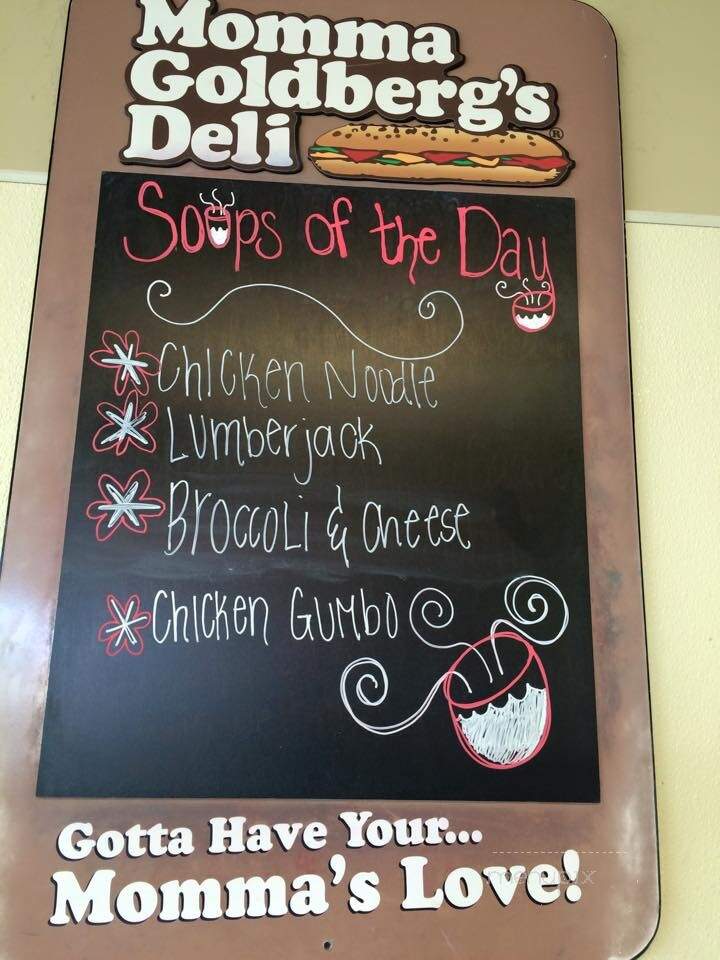 Momma
Goldberg's
Deli ®
Soups of the Day
Chicken Noodle
Lumberjack
Broccoli & Cheese
Chicken Gumbo
Gotta Have Your...
Momma's Love!